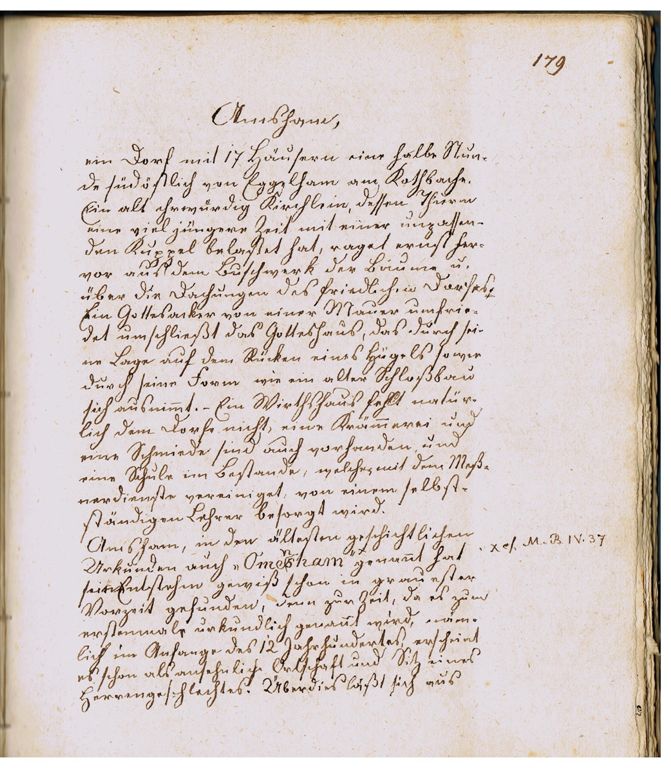 179
Amsham,
ein Dorf mit 17 Häusern eine halbe Stun-
de südöstlich von Egglham am Kothbache.
Ein alt ehrwürdig Kirchlein, dessen Thurm
eine viel jüngere Zeit mit einer unpassen-
den Kuppel belastet hat, raget ernst her-
vor aus dem Buschwerk der Bäume u.
über die Dachungen des friedlichen Dorfes.
Ein Gottesacker von einer Mauer umfrie-
det umschließt das Gotteshaus, das durch sei-
ne Lage auf dem Rücken eines Hügels sowie
durch seine Form wie ein alter Schloßbau
sich ausnimmt. - Ein Wirthshaus fehlt natür-
lich dem Dorfe nicht, eine Krämmerei und
eine Schmiede sind auch vorhanden und
eine Schule im Bestande, welche mit dem Meß-
nerdienste vereiniget, von einem selbst-
ständigen Lehrer besorgt wird.
Amsham, in den ältesten geschichtlichen
Urkunden auch "Omesham" x genannt hat
sein Entstehen gewiß schon in grauester
Vorzeit gefunden, denn zur Zeit, da es zum
erstenmale urkundlich genannt wird, näm-
lich im Anfange des 12 Jahrhundertes, erscheint
es schon als ansehnliche Ortschaft und Sitz eines
Herrengeschlechtes. Überdies läßt sich aus
x cf. M. B. IV. 37